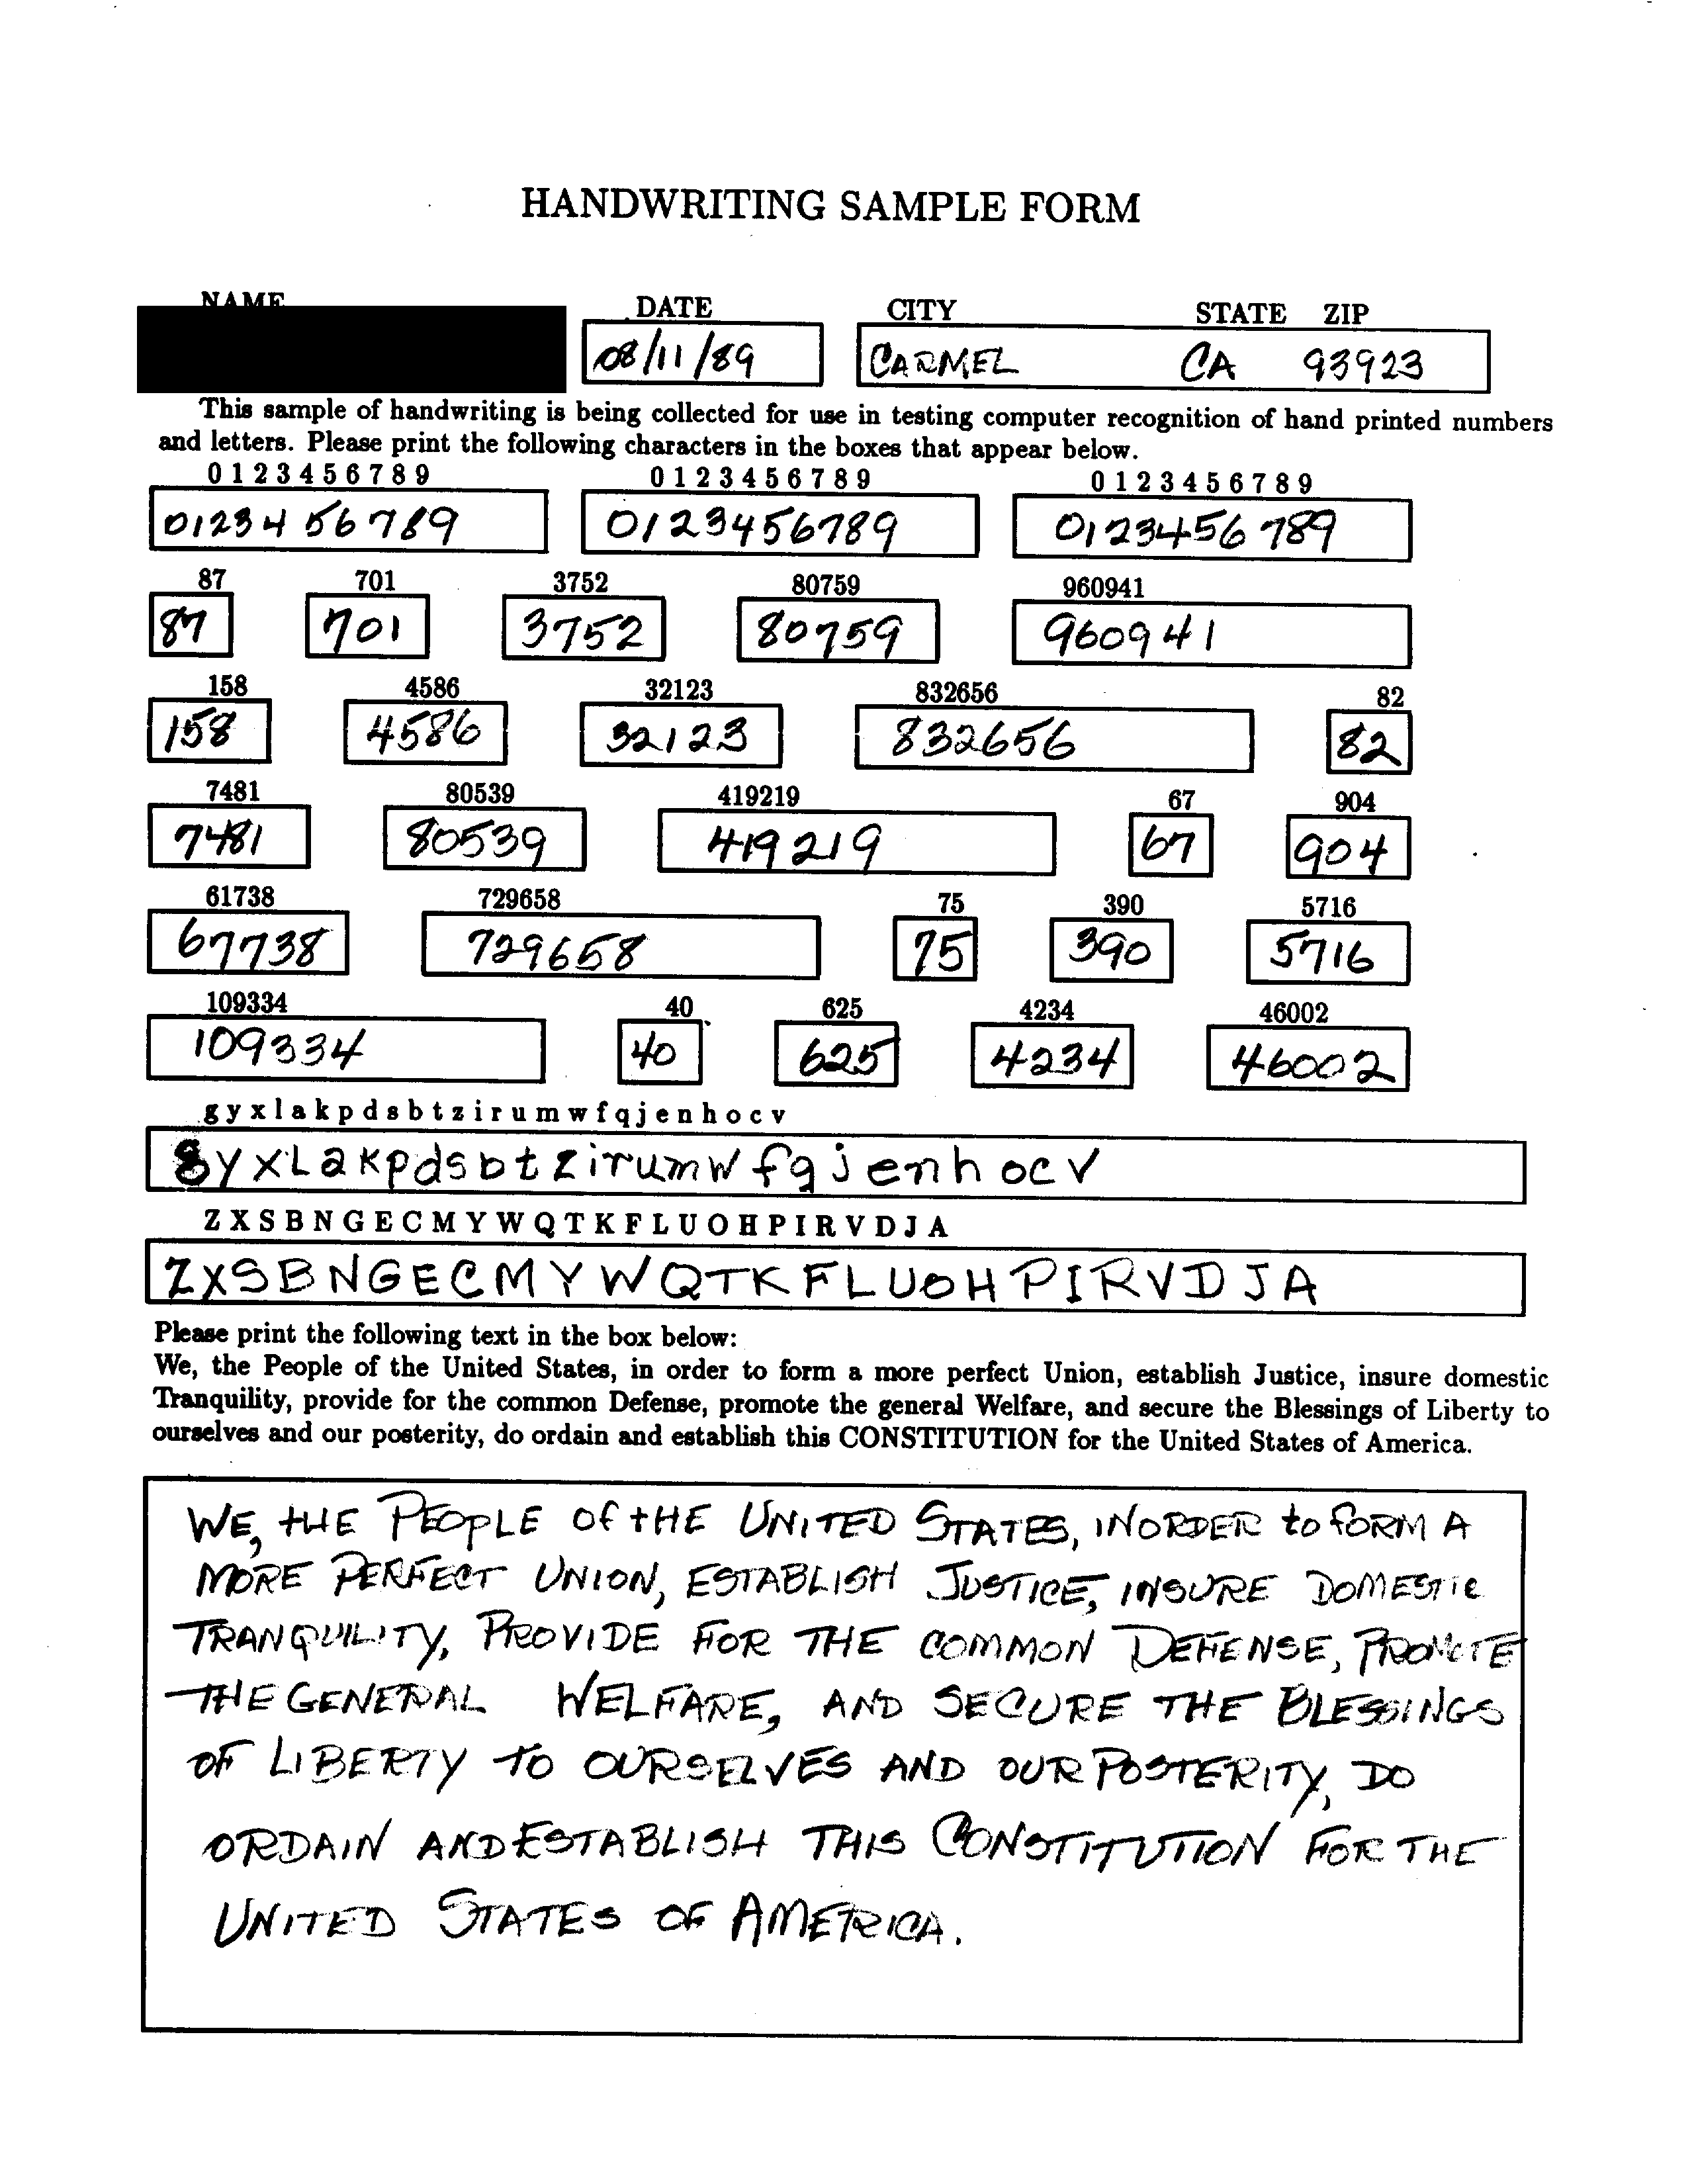 HANDWRITING SAMPLE FORM
NAME DATE CITY STATE ZIP
08/11/89 CARMEL CA 93923
This sample of handwriting is being collected for use in testing computer recognition of hand printed numbers
and letters. Please print the following characters in the boxes that appear below.
0 1 2 3 4 5 6 7 8 9 0 1 2 3 4 5 6 7 8 9 0 1 2 3 4 5 6 7 8 9
01234 56789 0123456789 0123456 789
87 701 3752 80759 960941
87 701 3752 80759 960941
158 4586 32123 832656 82
158 4586 32123 832656 82
7481 80539 419219 67 904
7481 80539 419219 67 904
61738 729658 75 390 5716
67738 729658 75 390 5716
109334 40 625 4234 46002
109334 40 625 4234 46002
g y x l a k p d s b t z i r u m w f q j e n h o c v
gyxLakpdsbtzirumwfqjenhocv
Z X S B N G E C M Y W Q T K F L U O H P I R V D J A
ZXSBNGECMYWQTKFLUOHPIRVDJA
Please print the following text in the box below:
We, the People of the United States, in order to form a more perfect Union, establish Justice, insure domestic
Tranquility, provide for the common Defense, promote the general Welfare, and secure the Blessings of Liberty to
ourselves and our posterity, do ordain and establish this CONSTITUTION for the United States of America.
WE, tHE PEOPLE Of tHE UNITED STATES, INORDER to fORM A
MORE PERFECT UNION, ESTABLISH JUSTICE, INSURE DOMESTIC
TRANQUILITY, PROVIDE FOR THE COMMON DEFENSE, PROMOTE
THE GENERAL WELFARE, AND SECURE THE BLESSINGS
OF LIBERTY TO OURSELVES AND OUR POSTERITY, DO
ORDAIN AND ESTABLISH THIS CONSTITUTION FOR THE
UNITED STATES OF AMERICA.